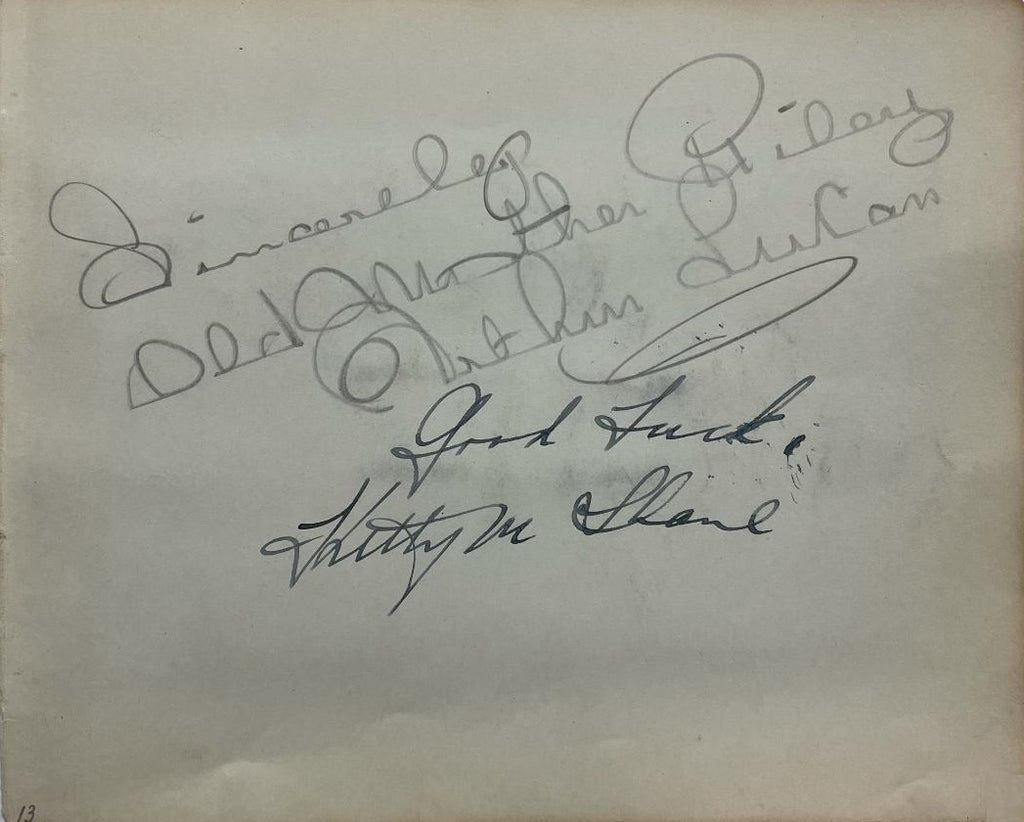 Sincerely
Old Mother Riley
Arthur Lucan
Good Luck.
Kitty Mc Shane
13